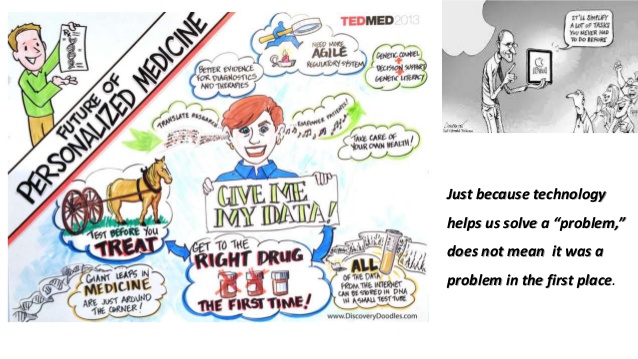 TEDMED2013
FUTURE OF
PERSONALIZED MEDICINE
BETTER EVIDENCE
FOR DIAGNOSTICS
AND THERAPIES
NEED MORE
AGILE
REGULATORY SYSTEM
GENETIC COUNSEL
+
DECISION SUPPORT
+
GENETIC LITERACY
TRANSLATE RESEARCH
EMPOWER PATIENTS!
TAKE CARE OF
YOUR OWN HEALTH!
GIVE ME
MY DATA!
TEST BEFORE YOU
TREAT
GET TO THE
RIGHT DRUG
THE FIRST TIME!
GIANT LEAPS IN
MEDICINE
ARE JUST AROUND
THE CORNER!
ALL
OF THE DATA
FROM THE INTERNET
CAN BE STORED IN DNA
IN A SMALL TEST TUBE
www.DiscoveryDoodles.com
IT'LL SIMPLIFY
A LOT OF TASKS
YOU NEVER HAD
TO DO BEFORE
Just because technology
helps us solve a “problem,”
does not mean it was a
problem in the first place.